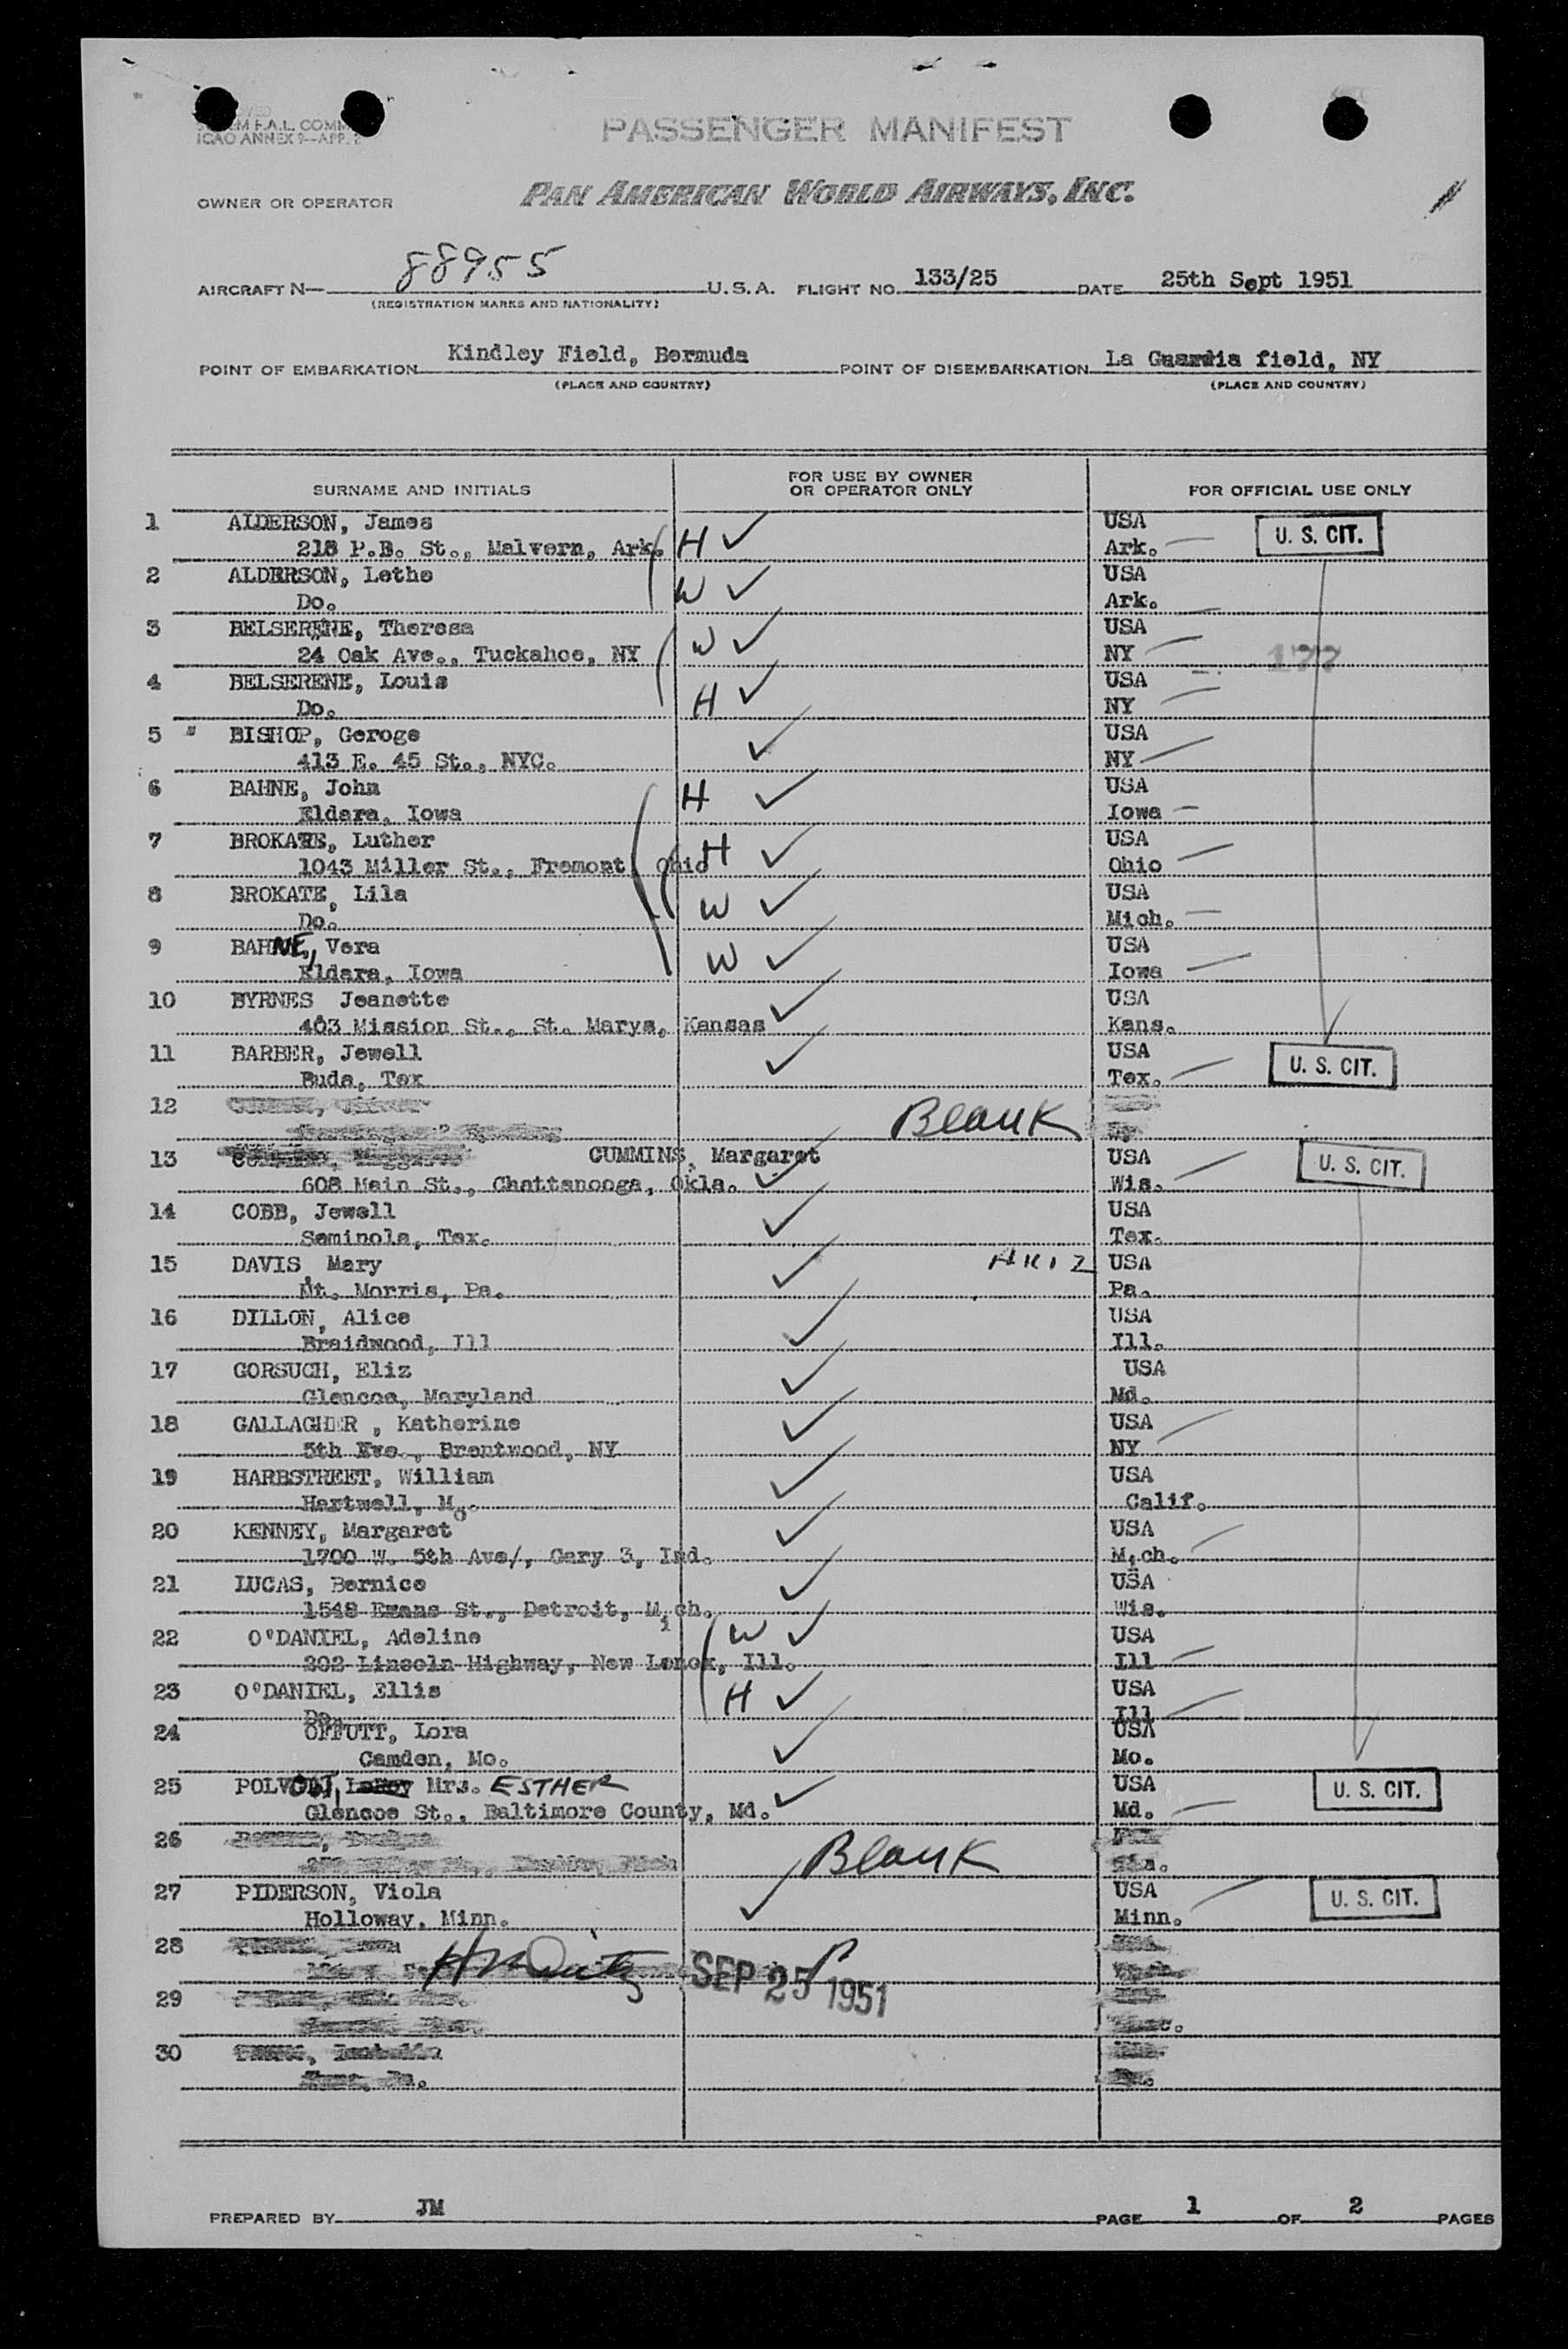 F.A.L. COMM
ICAO ANNEX 9—APP. 2
PASSENGER MANIFEST
OWNER OR OPERATOR PAN AMERICAN WORLD AIRWAYS, INC.
AIRCRAFT N— 88955 U.S.A. FLIGHT NO. 133/25 DATE 25th Sept 1951
(REGISTRATION MARKS AND NATIONALITY)
POINT OF EMBARKATION Kindley Field, Bermuda POINT OF DISEMBARKATION La Guardia field, NY
(PLACE AND COUNTRY) (PLACE AND COUNTRY)
SURNAME AND INITIALS FOR USE BY OWNER OR OPERATOR ONLY FOR OFFICIAL USE ONLY
1 ALDERSON, James USA U. S. CIT.
218 P.B. St., Malvern, Ark. H ✓ Ark.
2 ALDERSON, Lethe USA
Do. W ✓ Ark.
3 BELSERENE, Theresa USA
24 Oak Ave., Tuckahoe, NY W ✓ NY 177
4 BELSERENE, Louis USA
Do. H ✓ NY
5 BISHOP, Geroge USA
413 E. 45 St., NYC. ✓ NY
6 BAHNE, John H ✓ USA
Eldara, Iowa Iowa
7 BROKATE, Luther H ✓ USA
1043 Miller St., Fremont, Ohio Ohio
8 BROKATE, Lila W ✓ USA
Do. Mich.
9 BAHNE, Vera W ✓ USA
Eldara, Iowa Iowa
10 BYRNES Jeanette ✓ USA
403 Mission St., St. Marys, Kansas Kans.
11 BARBER, Jewell ✓ USA U. S. CIT.
Buda, Tex Tex.
12 Blank
13 CUMMINS, Margaret USA U. S. CIT.
608 Main St., Chattanooga, Okla. ✓ Wis.
14 COBB, Jewell ✓ USA
Seminole, Tex. Tex.
15 DAVIS, Mary ✓ ARIZ USA
Mt. Morris, Pa. Pa.
16 DILLON, Alice ✓ USA
Braidwood, Ill Ill.
17 GORSUCH, Eliz ✓ USA
Glencoe, Maryland Md.
18 GALLAGHER , Katherine ✓ USA
5th Ave., Brentwood, NY NY
19 HARBSTREET, William ✓ USA
Hartwell, Mo. Calif.
20 KENNEY, Margaret ✓ USA
1700 W. 5th Ave/, Gary 3, Ind. Mich.
21 LUCAS, Bernice ✓ USA
1548 Evans St., Detroit, Mich. Wis.
22 O'DANIEL, Adeline W ✓ USA
302 Lincoln Highway, New Lenox, Ill. Ill
23 O'DANIEL, Ellis H ✓ USA
Do. Ill
24 OFFUTT, Lora ✓ USA
Camden, Mo. Mo.
25 Mrs. ESTHER ✓ USA U. S. CIT.
Glencoe St., Baltimore County, Md. Md.
26 Blank
27 PIDERSON, Viola ✓ USA U. S. CIT.
Holloway, Minn. Minn.
28
SEP 25 1951
29
30
PREPARED BY JM PAGE 1 OF 2 PAGES